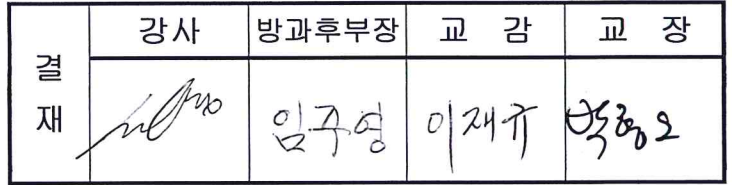 결재 강사 방과후부장 교 감 교 장
임주영 이재규